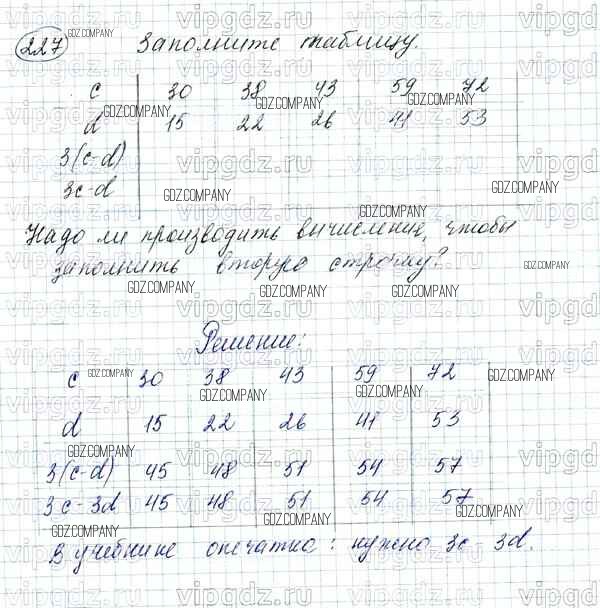 227 Заполните таблицу.
c 30 38 43 59 72
d 15 22 26 41 53
3(c-d)
3c-d
Надо ли производить вычисление, чтобы
заполнить вторую строчку?
Решение:
c 30 38 43 59 72
d 15 22 26 41 53
3(c-d) 45 48 51 54 57
3c-3d 45 48 51 54 57
В учебнике опечатка: нужно 3c-3d.
vipgdz.ru
GDZ.COMPANY